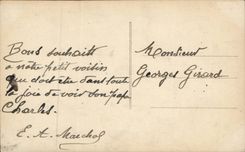 Bons souhaits
à notre petit voisin
qui doit être dans toute
la joie de voir son papa
Charles.
E. A. Marchal
Monsieur
Georges Girard